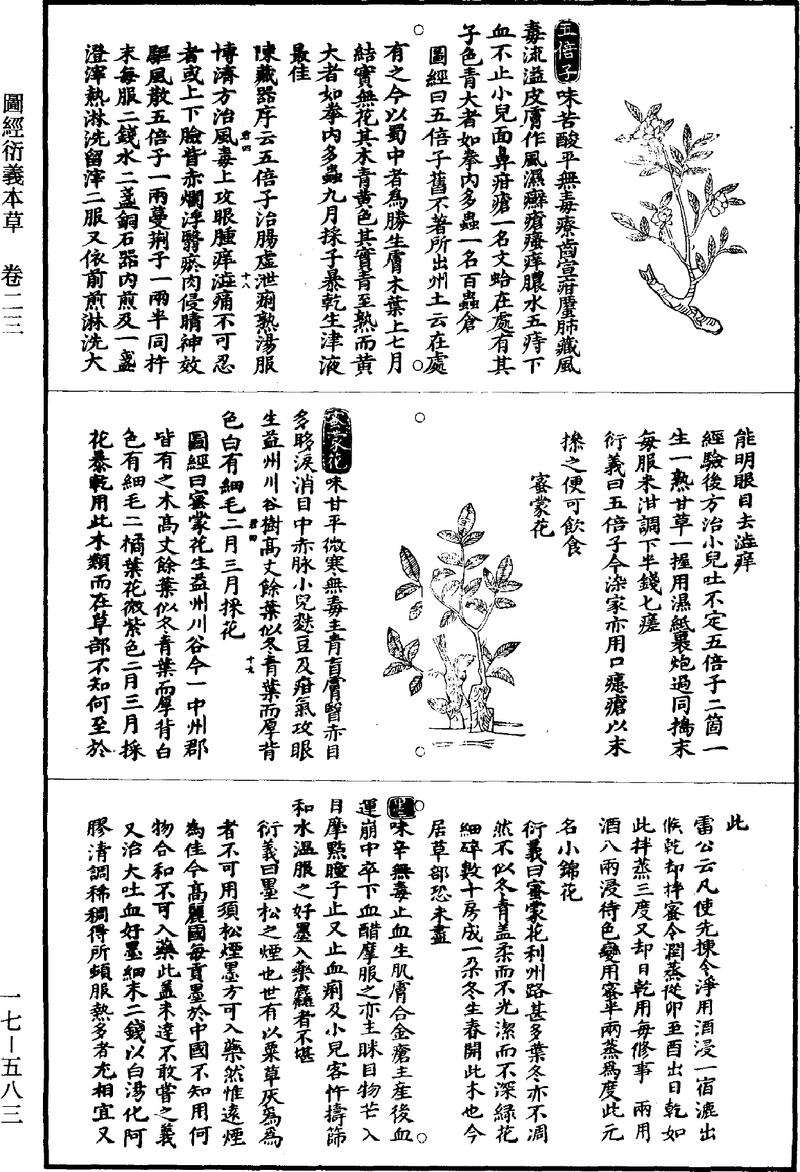 圖經衍義本草　卷二三
一七—五八三
五倍子味苦酸平無毒療齒宣疳䘌肺藏風
毒流溢皮膚作風濕癬瘡瘙痒膿水五痔下
血不止小兒面鼻疳瘡一名文蛤在處有其
子色青大者如拳内多蟲一名百蟲倉
圖經曰五倍子舊不著所出州土云在處
有之今以蜀中者為勝生膚木葉上七月
結實無花其木青黄色其實青至熟而黄
大者如拳内多蟲九月採子暴乾生津液
最佳
陳藏器序云五倍子治腸虛泄痢熟湯服
博濟方治風毒上攻眼腫痒澁痛不可忍
者或上下瞼眥赤爛浮翳瘀肉侵睛神效
驅風散五倍子一兩蔓荆子一兩半同杵
末每服二錢水二盞銅石器内煎及一盞
澄滓熱淋洗留滓二服又依前煎淋洗大
能明眼目去澁痒
經驗後方治小兒吐不定五倍子二箇一
生一熟甘草一握用濕紙裹炮過同擣末
每服米泔調下半錢七瘥
衍義曰五倍子今染家亦用口瘡以末
摻之便可飲食
蜜蒙花
蜜蒙花味甘平微寒無毒主青盲膚瞖赤目
多眵淚消目中赤脉小兒麩豆及疳氣攻眼
生益州川谷樹高丈餘葉似冬青葉而厚背
色白有細毛二月三月採花
圖經曰蜜蒙花生益州川谷今一中州郡
皆有之木高丈餘葉似冬青葉而厚背白
色有細毛二橘葉花微紫色二月三月採
花暴乾用此木類而在草部不知何至於
此
雷公云凡使先揀令淨用酒浸一宿漉出
候乾却拌蜜令潤蒸從卯至酉出日乾如
此拌蒸三度又却日乾用每修事一兩用
酒八兩浸待色變用蜜半兩蒸為度此元
名小錦花
衍義曰蜜蒙花利州路甚多葉冬亦不凋
然不似冬青盖柔而不光潔而不深緑花
細碎數十房成一朶冬生春開此木也今
居草部恐未盡
味辛無毒止血生肌膚合金瘡主產後血
運崩中卒下血醋摩服之亦主眯目物芒入
目摩點瞳子止又止血痢及小兒客忤擣篩
和水温服之好墨入藥麄者不堪
衍義曰墨松之煙也世有以粟草灰為為
者不可用須松煙墨方可入藥然惟遠煙
為佳今高麗國每貢墨於中國不知用何
物合和不可入藥此盖未達不敢嘗之義
又治大吐血好墨細末二錢以白湯化阿
膠清調稀稠得所頻服熱多者尤相宜又